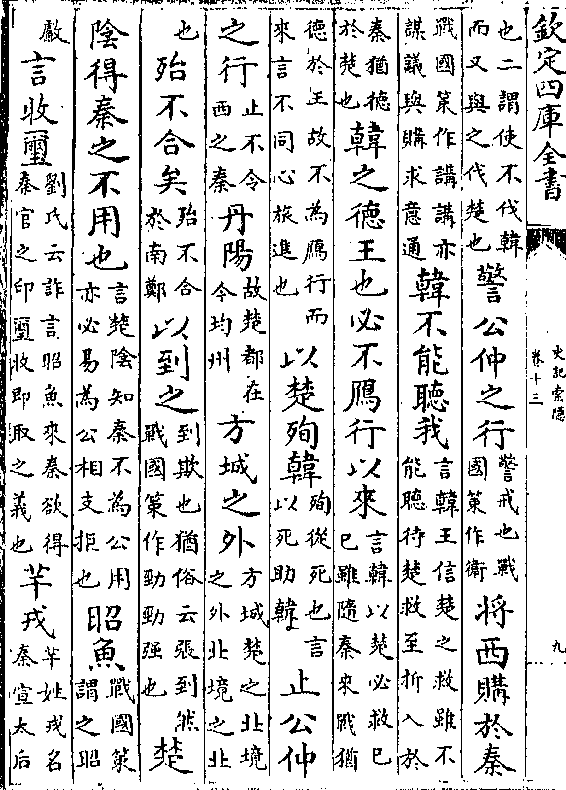 欽定四庫全書
史記索隱
卷十三
九
也二謂使不伐韓
而又與之伐楚也
警公仲之行
警戒也戰
國策作衛
將西購於秦
戰國策作講講亦
謀議與購求意通
韓不能聽我
言韓王信楚之救雖不
能聽待楚救至折入於
秦猶德
於楚也
韓之德王也必不鴈行以來
言韓以楚必救已
已雖隨秦來戰猶
德於王故不為鴈行而
來言不同心旅進也
以楚殉韓
殉從死也言
以死助韓
止公仲
之行
止不令
西之秦
丹陽
故楚都在
今均州
方城之外
方城楚之北境
之外北境之北
也
殆不合矣
殆不合
於南鄭
以到之
到欺也猶俗云張到然
戰國策作勁勁强也
楚
陰得秦之不用也
言楚陰知秦不為公用
亦必易為公相支拒也
昭魚
戰國策
謂之昭
厰
言收璽
劉氏云詐言昭魚來秦欲得
秦官之印璽收即取之義也
芉戎
芉姓戎名
秦宣太后